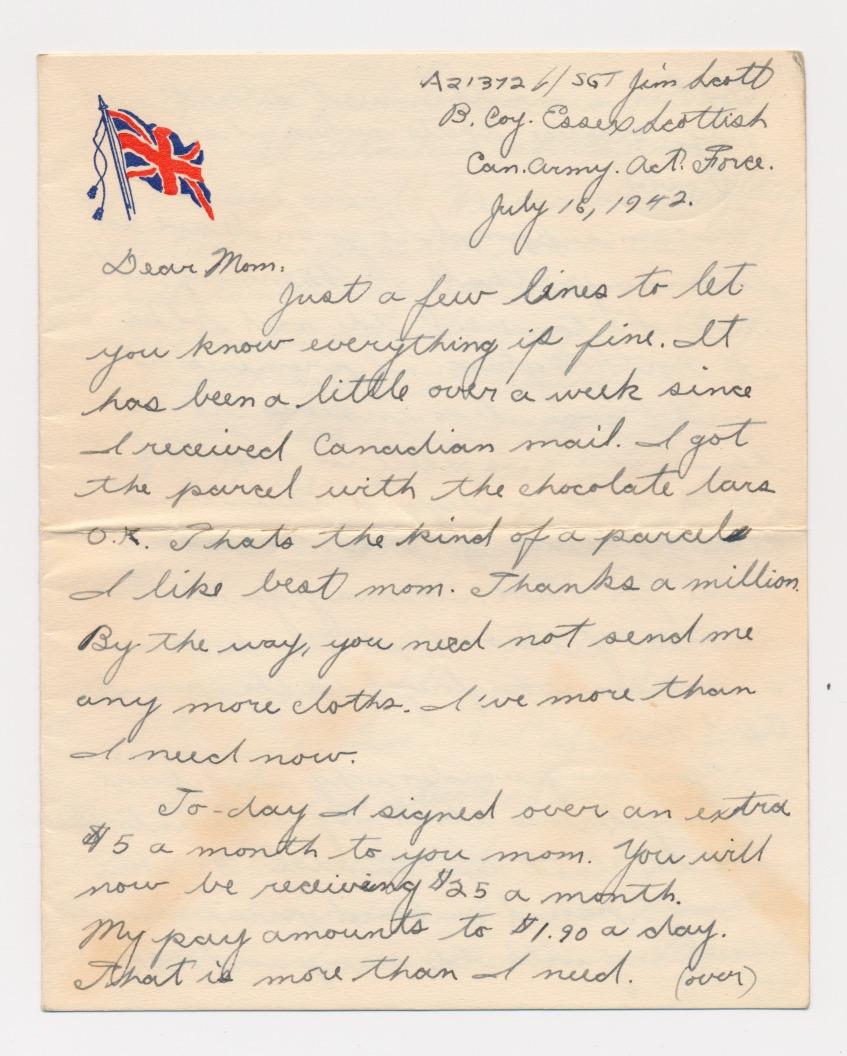 A21372 L/SGT Jim Scott
B. Coy. Essex Scottish
Can. Army. Act. Force.
July 16, 1942.
Dear Mom.
Just a few lines to let
you know everything is fine. It
has been a little over a week since
I received Canadian mail. I got
the parcel with the chocolate bars
O.K. Thats the kind of a parcel
I like best mom. Thanks a million.
By the way, you need not send me
any more cloths. I've more than
I need now.
To-day I signed over an extra
$5 a month to you mom. You will
now be receiving $25 a month.
My pay amounts to $1.90 a day.
That is more than I need. (over)